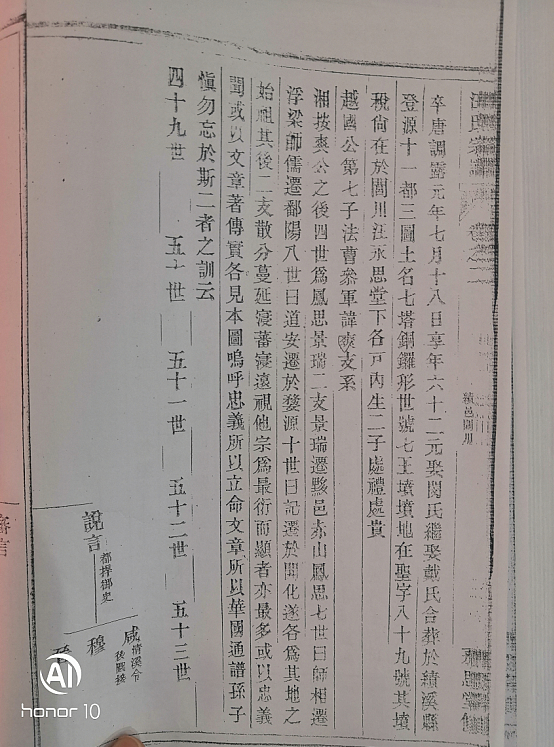 汪氏宗譜
績邑閌川
辛唐調露元年七月十八日享年六十二元娶閔氏繼娶戴氏合葬於績溪縣
登源十一都三圖土名七塔銅鑼形世號七王墳墳地在聖字八十九號其墳
稅尙在於閌川汪永思堂下各戸內生二子處禮處貴
越國公第七子法曹叅軍諱爽支系
湘按爽公之後四世爲鳳思景瑞二支景瑞遷黟邑赤山鳳思七世曰師相遷
浮梁師儒遷鄱陽八世曰道安遷於婺源十世曰記遷於開化遂各爲其地之
始祖其後二支散分蔓延寖蕃寖遠視他宗爲最衍而顯者亦最多或以忠義
聞或以文章著傳實各見本圖嗚呼忠義所以立命文章所以華國通譜孫子
愼勿忘於斯二者之訓云
四十九世 五十世 五十一世 五十二世 五十三世
說言 都押御史
咸 清溪令 後嗣
穆
honor 10